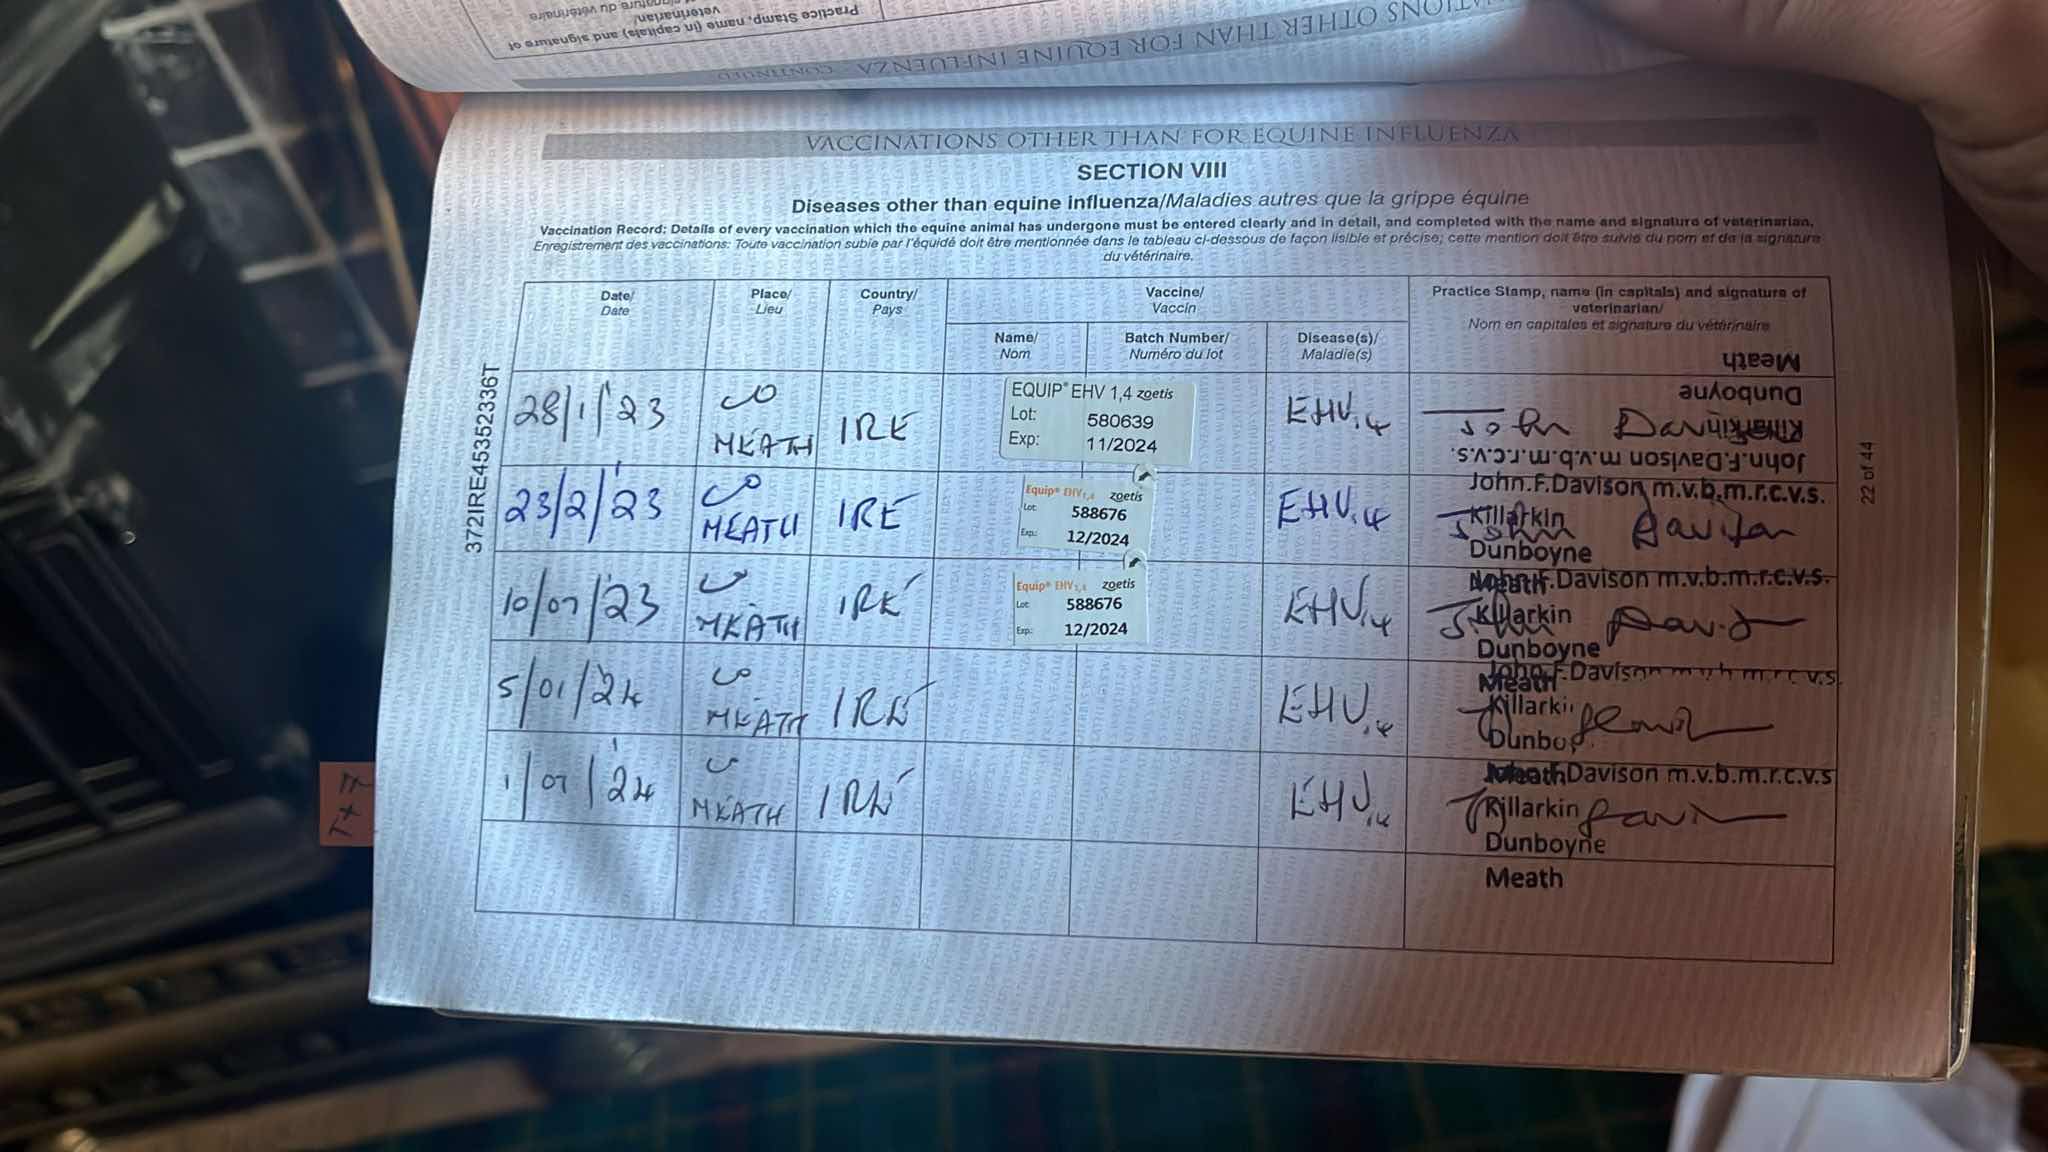 Practice Stamp, name (in capitals) and signature of
veterinarian/
signature du vétérinaire
VACCINATIONS OTHER THAN FOR EQUINE INFLUENZA - CONTINUED
VACCINATIONS OTHER THAN FOR EQUINE INFLUENZA
SECTION VIII
Diseases other than equine influenza/Maladies autres que la grippe équine
Vaccination Record: Details of every vaccination which the equine animal has undergone must be entered clearly and in detail, and completed with the name and signature of veterinarian.
Enregistrement des vaccinations: Toute vaccination subie par l'équidé doit être mentionnée dans le tableau ci-dessous de façon lisible et précise; cette mention doit être suivie du nom et de la signature
du vétérinaire.
Date/ Place/ Country/ Vaccine/ Practice Stamp, name (in capitals) and signature of
Date Lieu Pays Vaccin veterinarian/
Nom en capitales et signature du vétérinaire
Name/ Batch Number/ Disease(s)/
Nom Numéro du lot Maladie(s)
Meath
Dunboyne
Killarkin
John.F.Davison m.v.b.m.r.c.v.s.
28/1/'23 CO MEATH IRE EHV1,4 John Davison
EQUIP® EHV 1,4 zoetis
Lot: 580639
Exp: 11/2024
John.F.Davison m.v.b.m.r.c.v.s.
23/2/'23 CO MEATH IRE EHV1,4 John Davison
Equip® EHV1,4 zoetis
Lot: 588676
Exp.: 12/2024
Killarkin
Dunboyne
Meath
John.F.Davison m.v.b.m.r.c.v.s.
10/07/'23 CO MEATH IRE EHV1,4 John
Equip® EHV1,4 zoetis
Lot: 588676
Exp.: 12/2024
Killarkin
Dunboyne
Meath
John.F.Davison m.v.b.m.r.c.v.s.
5/01/'24 CO MEATH IRE EHV1,4
Killarkin
Dunboy
Meath
Davison m.v.b.m.r.c.v.s
1/07/'24 CO MEATH IRE EHV1,4
Killarkin
Dunboyne
Meath
372IRE45352336T
22 of 44